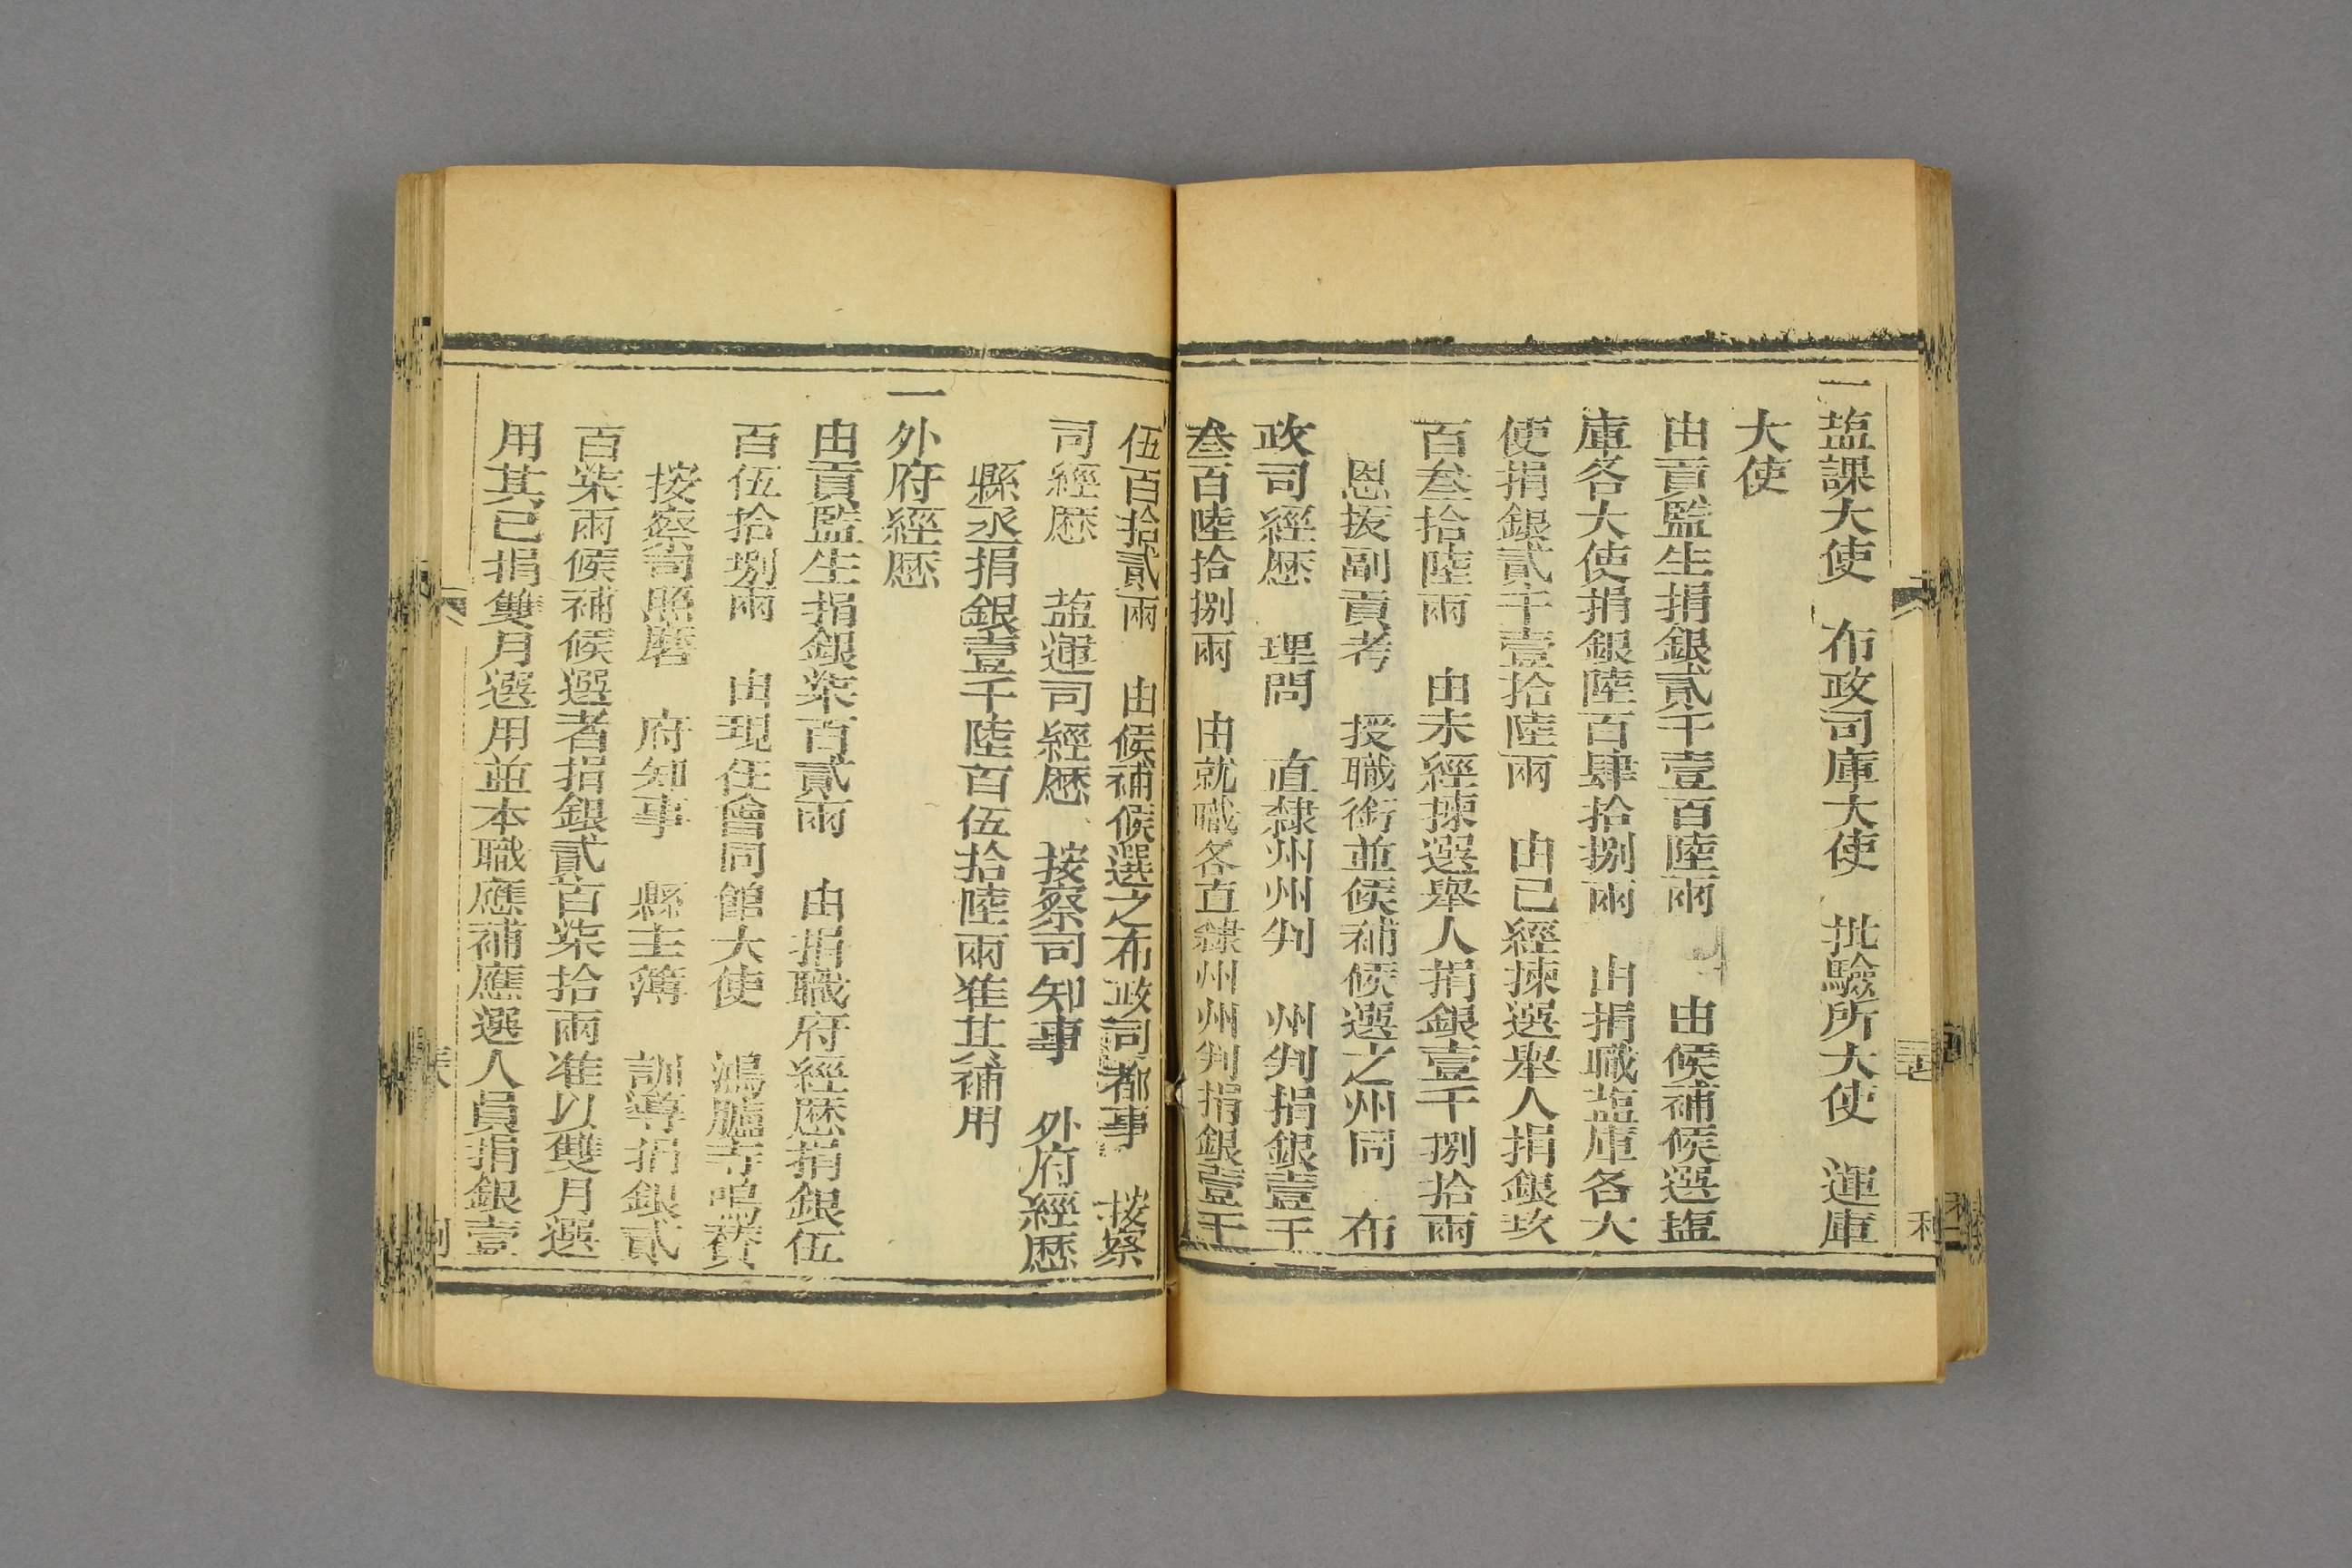 一盐課大使　布政司庫大使　批驗所大使　運庫
大使
由貢監生捐銀貳千壹百陸兩　由候補候選盐
庫各大使捐銀陸百肆拾捌兩　由捐職盐庫各大
使捐銀貳千壹拾陸兩　由已經揀選舉人捐銀玖
百叁拾陸兩　由未經揀選舉人捐銀壹千捌拾兩
恩拔副貢考　授職銜並候補候選之州同　布
政司經歷　理問　直隸州州判　州判捐銀壹千
叁百陸拾捌兩　由就職各直隸州州判捐銀壹千
伍百拾貳兩　由候補候選之布政司都事　按察
司經歷　盐運司經歷　按察司知事　外府經歷
縣丞捐銀壹千陸百伍拾陸兩准其補用
一外府經歷
由貢監生捐銀柒百貳兩　由捐職府經歷捐銀伍
百伍拾捌兩　由現任會同館大使　鴻臚寺鳴贊
按察司照磨　府知事　縣主簿　訓導捐銀貳
百柒兩候補候選者捐銀貳百柒拾兩准以雙月選
用其已捐雙月選用並本職應補應選人員捐銀壹